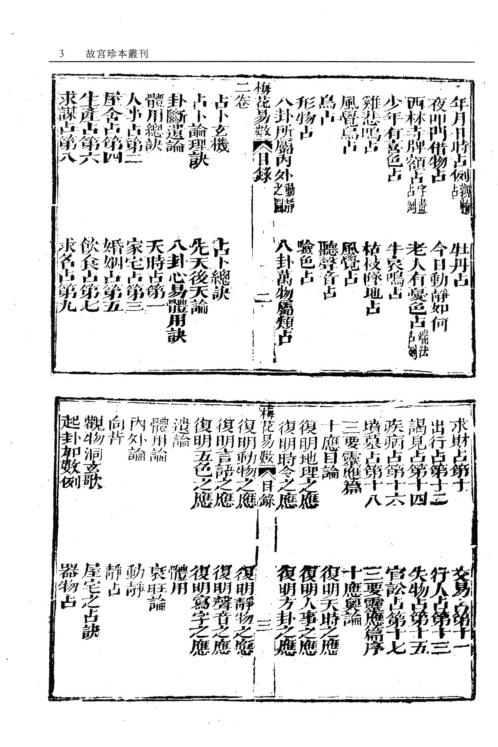 3 故宮珍本叢刊
年月日時占例觀物占 牡丹占
夜叩門借物占 今日動靜如何
西林寺牌額占字畫占例 老人有憂色占端法占例
少年有喜色占 牛哀鳴占
雞悲鳴占 枯枝墜地占
風聲鳥占 風覺占
鳥占 聽聲音占
形物占 驗色占
八卦所屬內外動靜 八卦萬物屬類占
梅花易數 目錄 二
二卷
占卜玄機 占卜總訣
占卜論理訣 先天後天論
卦斷遺論 八卦心易體用訣
體用總訣 天時占第一
人事占第二 家宅占第三
屋舍占第四 婚姻占第五
生產占第六 飲食占第七
求謀占第八 求名占第九
求財占第十 交易占第十一
出行占第十二 行人占第十三
謁見占第十四 失物占第十五
疾病占第十六 官訟占第十七
墳墓占第十八 三要靈應篇序
三要靈應篇 十應奧論
十應目論 復明天時之應
復明地理之應 復明人事之應
復明時令之應 復明方卦之應
梅花易數 目錄 三
復明動物之應 復明靜物之應
復明言語之應 復明聲音之應
復明五色之應 復明寫字之應
遺論 體用
體用論 衰旺論
內外論 動靜
向背 靜占
觀物洞玄歌 屋宅之占訣
起卦加數例 器物占